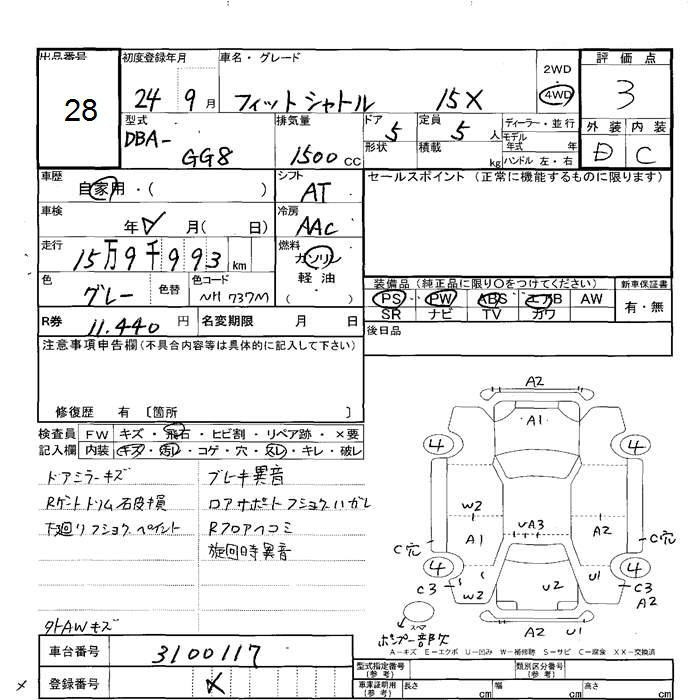 出品番号 初度登録年月 車名・グレード 評価点
28
24 9月 フィットシャトル 15X
2WD
4WD
3
型式 排気量 ドア 定員 ディーラー・並行 外装 内装
DBA-
GG8 1500cc 5 5人
形状 積載 kg
モデル年式 年
ハンドル 左・右
D C
車歴 自家用・( ) シフト AT
セールスポイント (正常に機能するものに限ります)
車検 年 月( 日) 冷房 AAC
走行 15万9千993km 燃料 ガソリン
軽油
( )
色 グレー 色替 色コード NH737M
装備品(純正品に限り〇をつけてください) 新車保証書
PS PW ABS エアB AW 有・無
SR ナビ TV カワ
R券 11,440円 名変期限 月 日
後日品
注意事項申告欄(不具合内容等は具体的に記入して下さい)
修復歴 有 〔箇所 〕
検査員 FW キズ・飛石・ヒビ割・リペア跡・×要
記入欄 内装 キズ・汚レ・コゲ・穴・スレ・キレ・破レ
ドアミラーキズ ブレーキ異音
Rゲートトリム石皮損 ロアサポートフショクハガレ
下廻りフショクペイント Rフロアヘコミ
旋回時異音
外AWキズ
A2
A1
4 4
W2
UA3
A1 A2
C穴 C穴
4 4
C3 W2 U2 U1 C3
A2
A2 U1
スペア
ポンプ一部欠
A-キズ E-エクボ U-凹み W-補修跡 S-サビ C-腐食 XX-交換済
車台番号 3100117
登録番号
型式指定番号(参考) 類別区分番号(参考)
車庫証明用(参考) 長さ cm 幅 cm 高さ cm